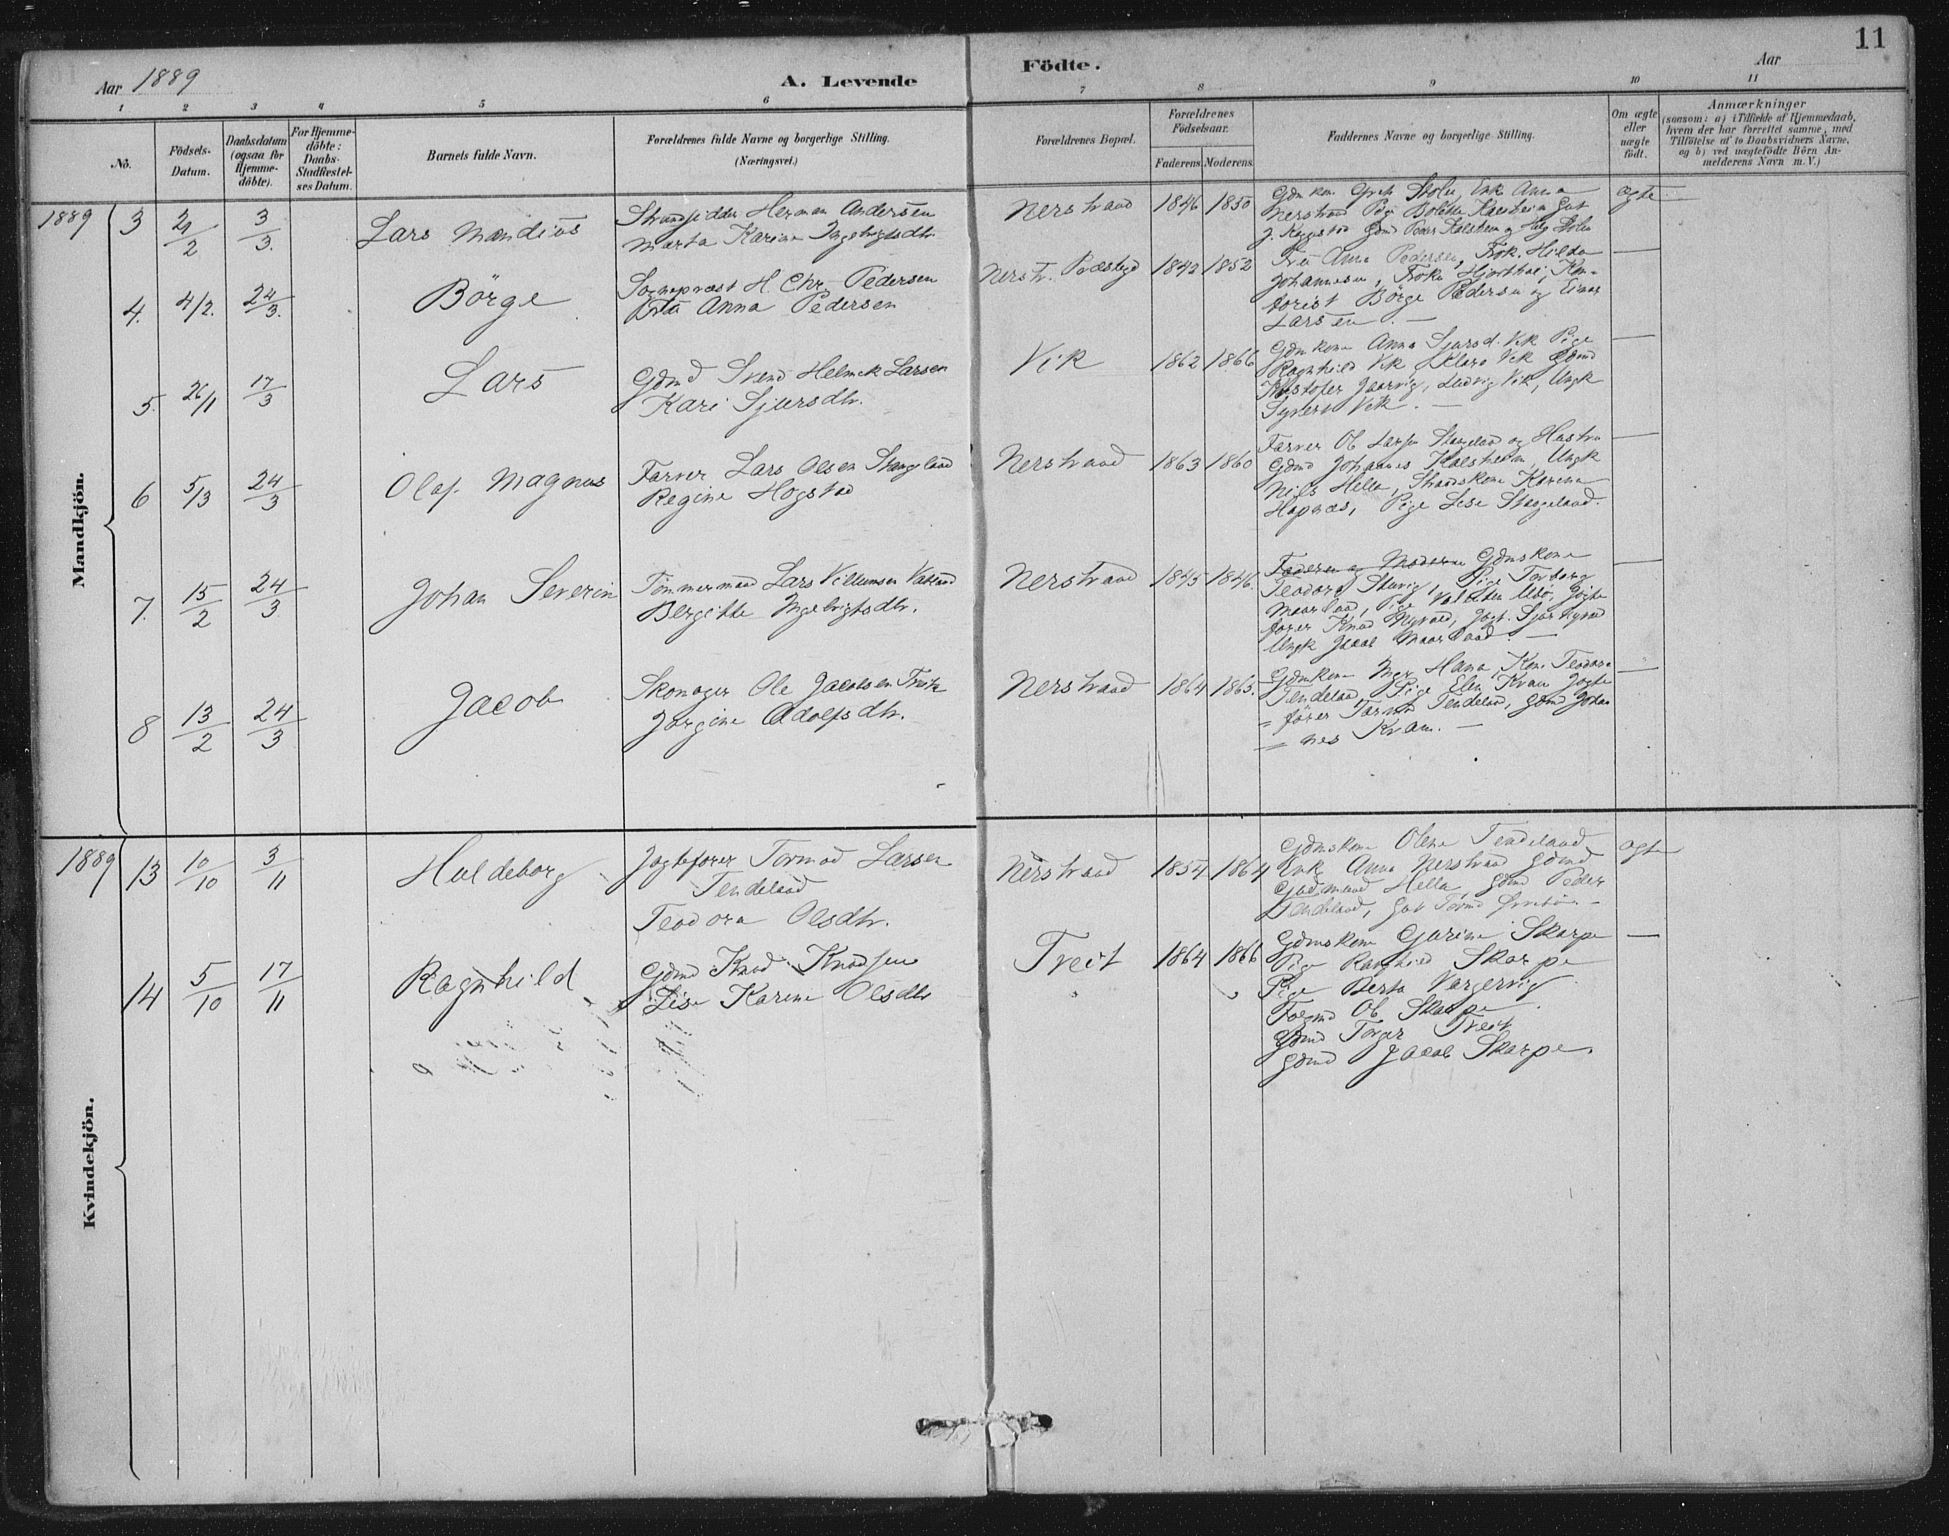 11
Aar 1889
A. Levende
Födte.
Aar
1 2 3 4 5 6 7 8 9 10 11
No.
Födsels-
Datum.
Daabsdatum
(ogsaa for
Hjemme-
döbte).
For Hjemme-
döbte:
Daabs-
Stadfæstel-
ses Datum.
Barnets fulde Navn.
Forældrenes fulde Navne og borgerlige Stilling.
(Næringsvei.)
Forældrenes Bopæl.
Forældrenes
Födselsaar.
Faderens Moderens
Faddernes Navne og borgerlige Stilling.
Om ægte
eller
uægte
födt.
Anmærkninger
(saasom: a) i Tilfælde af Hjemmedaab,
hvem der har forrettet samme, med
Tilföielse af to Daabsvidners Navne,
og b) ved uægtefödte Börn An-
melderens Navn m. V.)
Mandkjön.
1889 3 21/2 3/3 Lars Mandius
Strandsidder Herman Andersen
Marta Karine Ingebrigtsdtr.
Nerstrand 1846 1850
Enk Anna
Nerstrand Pige Bolette Kalsheim Gut
ægte
4. 4/2. 24/3. Börge
Sognepræst H. Chr. Pedersen
Anna Pedersen
Nerstr. Præstegd 1842 1852
Anna Pedersen, Frk. Hilda
Johannesen, Hjorthøi, Kon-
torist Börge Pedersen og Einar
Larsen. —
5. 26/1 17/3 Lars
Gdmd Svend Helmik Larsen
Kari Sjursdtr.
Vik 1862 1866
Gdmkone Anna Sjursd. Vik Pige
Ragnhild Vik, Klara Vik Gdmd
Kristofer Jaarvig, Ludvig Vik, Ungk
Syvert Vik. —
6 5/3 24/3 Olaf Magnus
Farver Lars Olsen Stangeland
Regine Hogstad
Nerstrand 1863 1860
Farver Ol. Larsen Stangeland og Hustru
Gdmd Johannes Kalsheim, Ungk
Nils Hella, Karine
Hapnæs, Pige Lise Stangeland.
7. 15/2 24/3 Johan Severin
Tømmermand Lars Villumsen
Bergitte Ingebrigtsdtr.
Nerstrand 1845 1846.
Faderen og Moderen Gdmskone
Teodora Pige Torborg
Pige Jagte
förer Knud
Ungk Jacob
8 13/2 24/3 Jacob
Skomager Ole Jacobsen
Jorgine Adolfsdtr.
Nerstrand 1864 1863.
Gdmkone Hana, Kone Teodora
Tendeland, Pige Elen Kvam Jagte
= förer Tendeland, Gdmd Johan
= nes Kvam. —
Kvindekjön.
1889 13 10/10 3/11 Huldeborg
Jagtefører Tormod Larsen
Tendeland
Teodora Olsdtr.
Nerstrand 1854 1864
Gdmskone Olene Tendeland
Enk. Anna Nerstrand Gdmd
Gudmund Hella, Gdmd Peder
Tendeland, Gut
ægte
14 5/10 17/11 Ragnhild
Gdmd Knud Knudsen
Lise Karine Olsdtr
Tveit 1864 1866
Gdmskone Gurine Skarpe
Pige Ragnhild Skarpe
Pige Berta Vargervig
Ol. Skarpe
Gdmd Torger Tveit
Gdmd Jacob Skarpe.